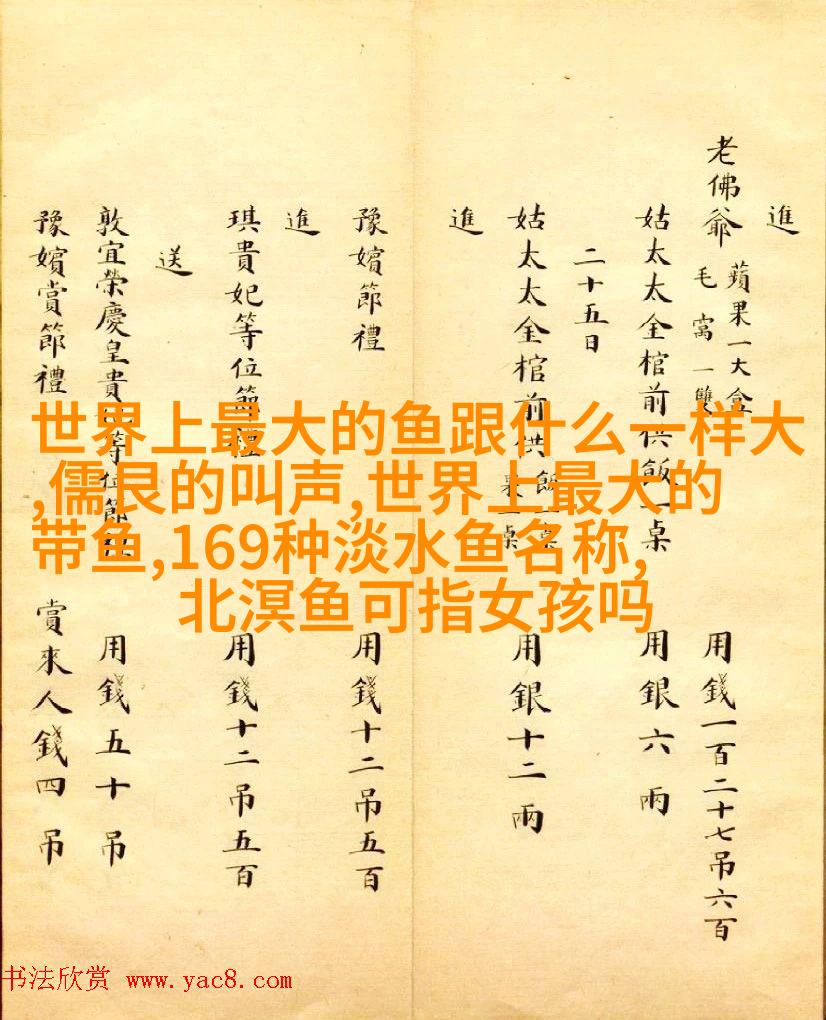 進
老佛爺 蘋果一大盒 毛窩一雙 用錢一百二十七吊六百
姑太太金棺前供飯一桌 用銀六兩
二十五日
姑太太金棺前供 飯一桌 菓一桌 用銀十二兩
進
豫嬪節禮 用錢十二吊五百
進
琪貴妃等位節禮 用錢十二吊五百
送
敦宜榮慶皇貴妃等位節禮 用錢五十吊
豫嬪賞節禮 賞來人錢四吊
世界上最大的鱼跟什么一样大
,儒艮的叫声,世界上最大的
带鱼,169种淡水鱼名称,
北溟鱼可指女孩吗
书法欣赏 www.yac8.com